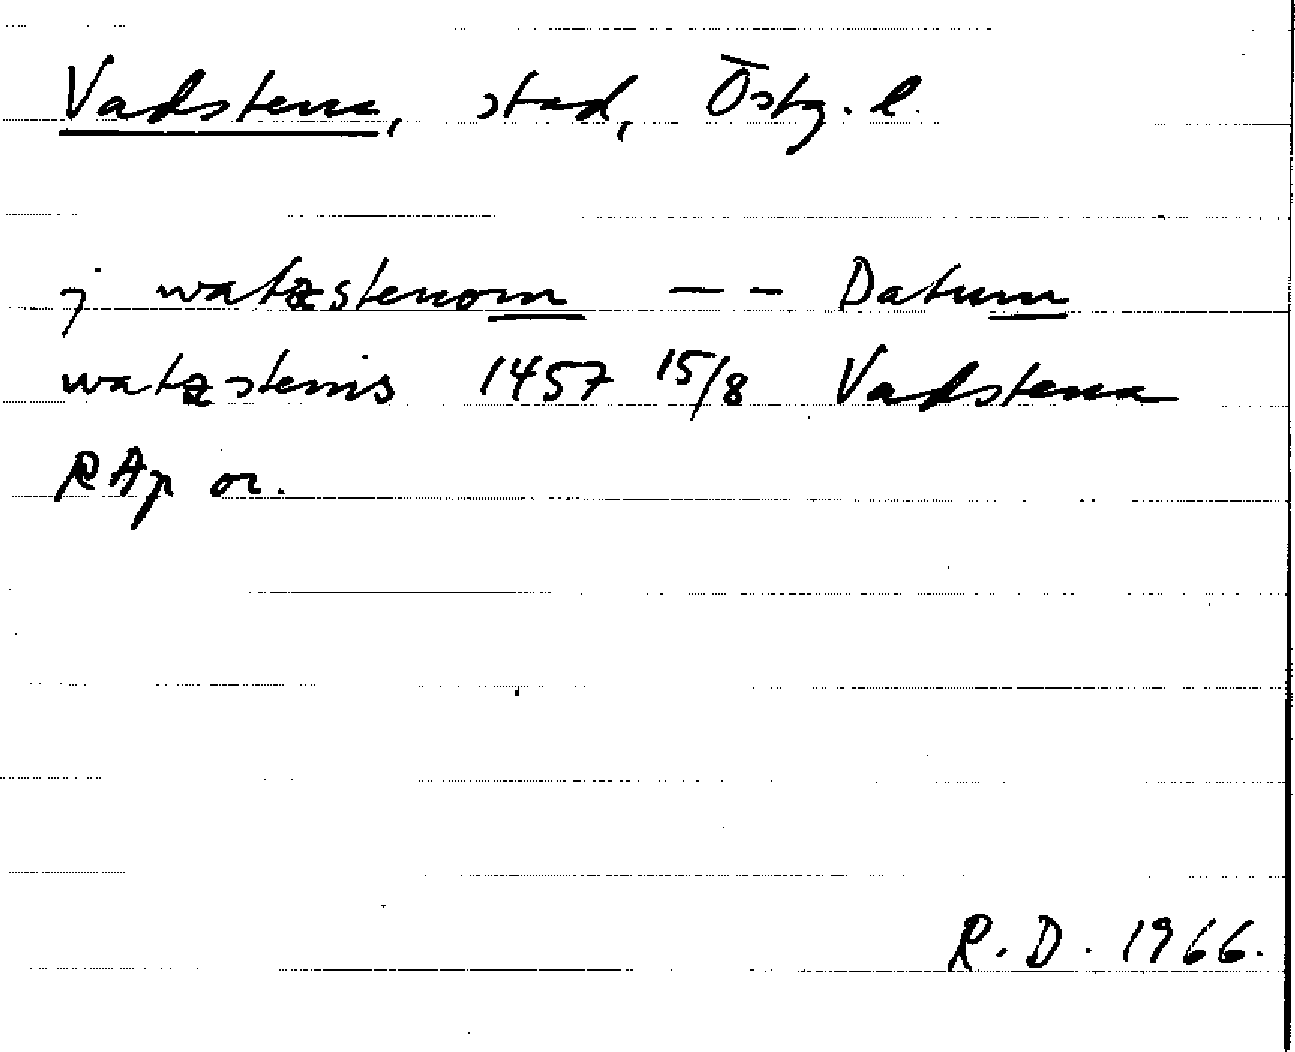 Vadstena, stad, Östg. l.
j watzstenom -- Datum
watzstenis 1457 15/8 Vadstena
RAp or.
R. D. 1966.